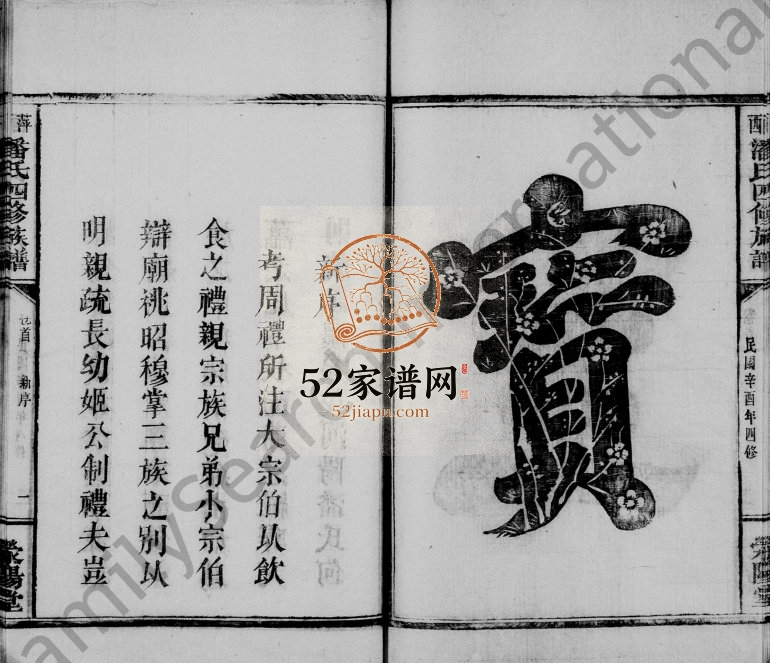 民國辛酉年四修
寶
新序
考周禮所注大宗伯以飲
食之禮親宗族兄弟小宗伯
辯廟祧昭穆掌三族之別以
明親疏長幼姬公制禮夫豈
潘氏四修族譜
卷首 新序 一
滎陽堂
52家谱网
52jiapu.com
FamilySearch International